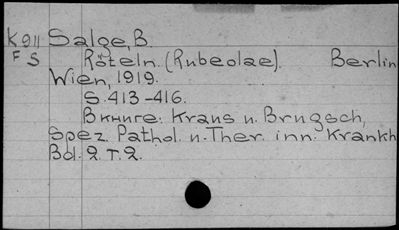 K 911 Salge, B.
FS Röteln. (Rubeolae). Berlin
Wien, 1919.
S. 413-416.
В книге: Kraus u. Brugsch,
Spez. Pathol. u. Ther. inn. Krankh
Bd. 2. T. 2.